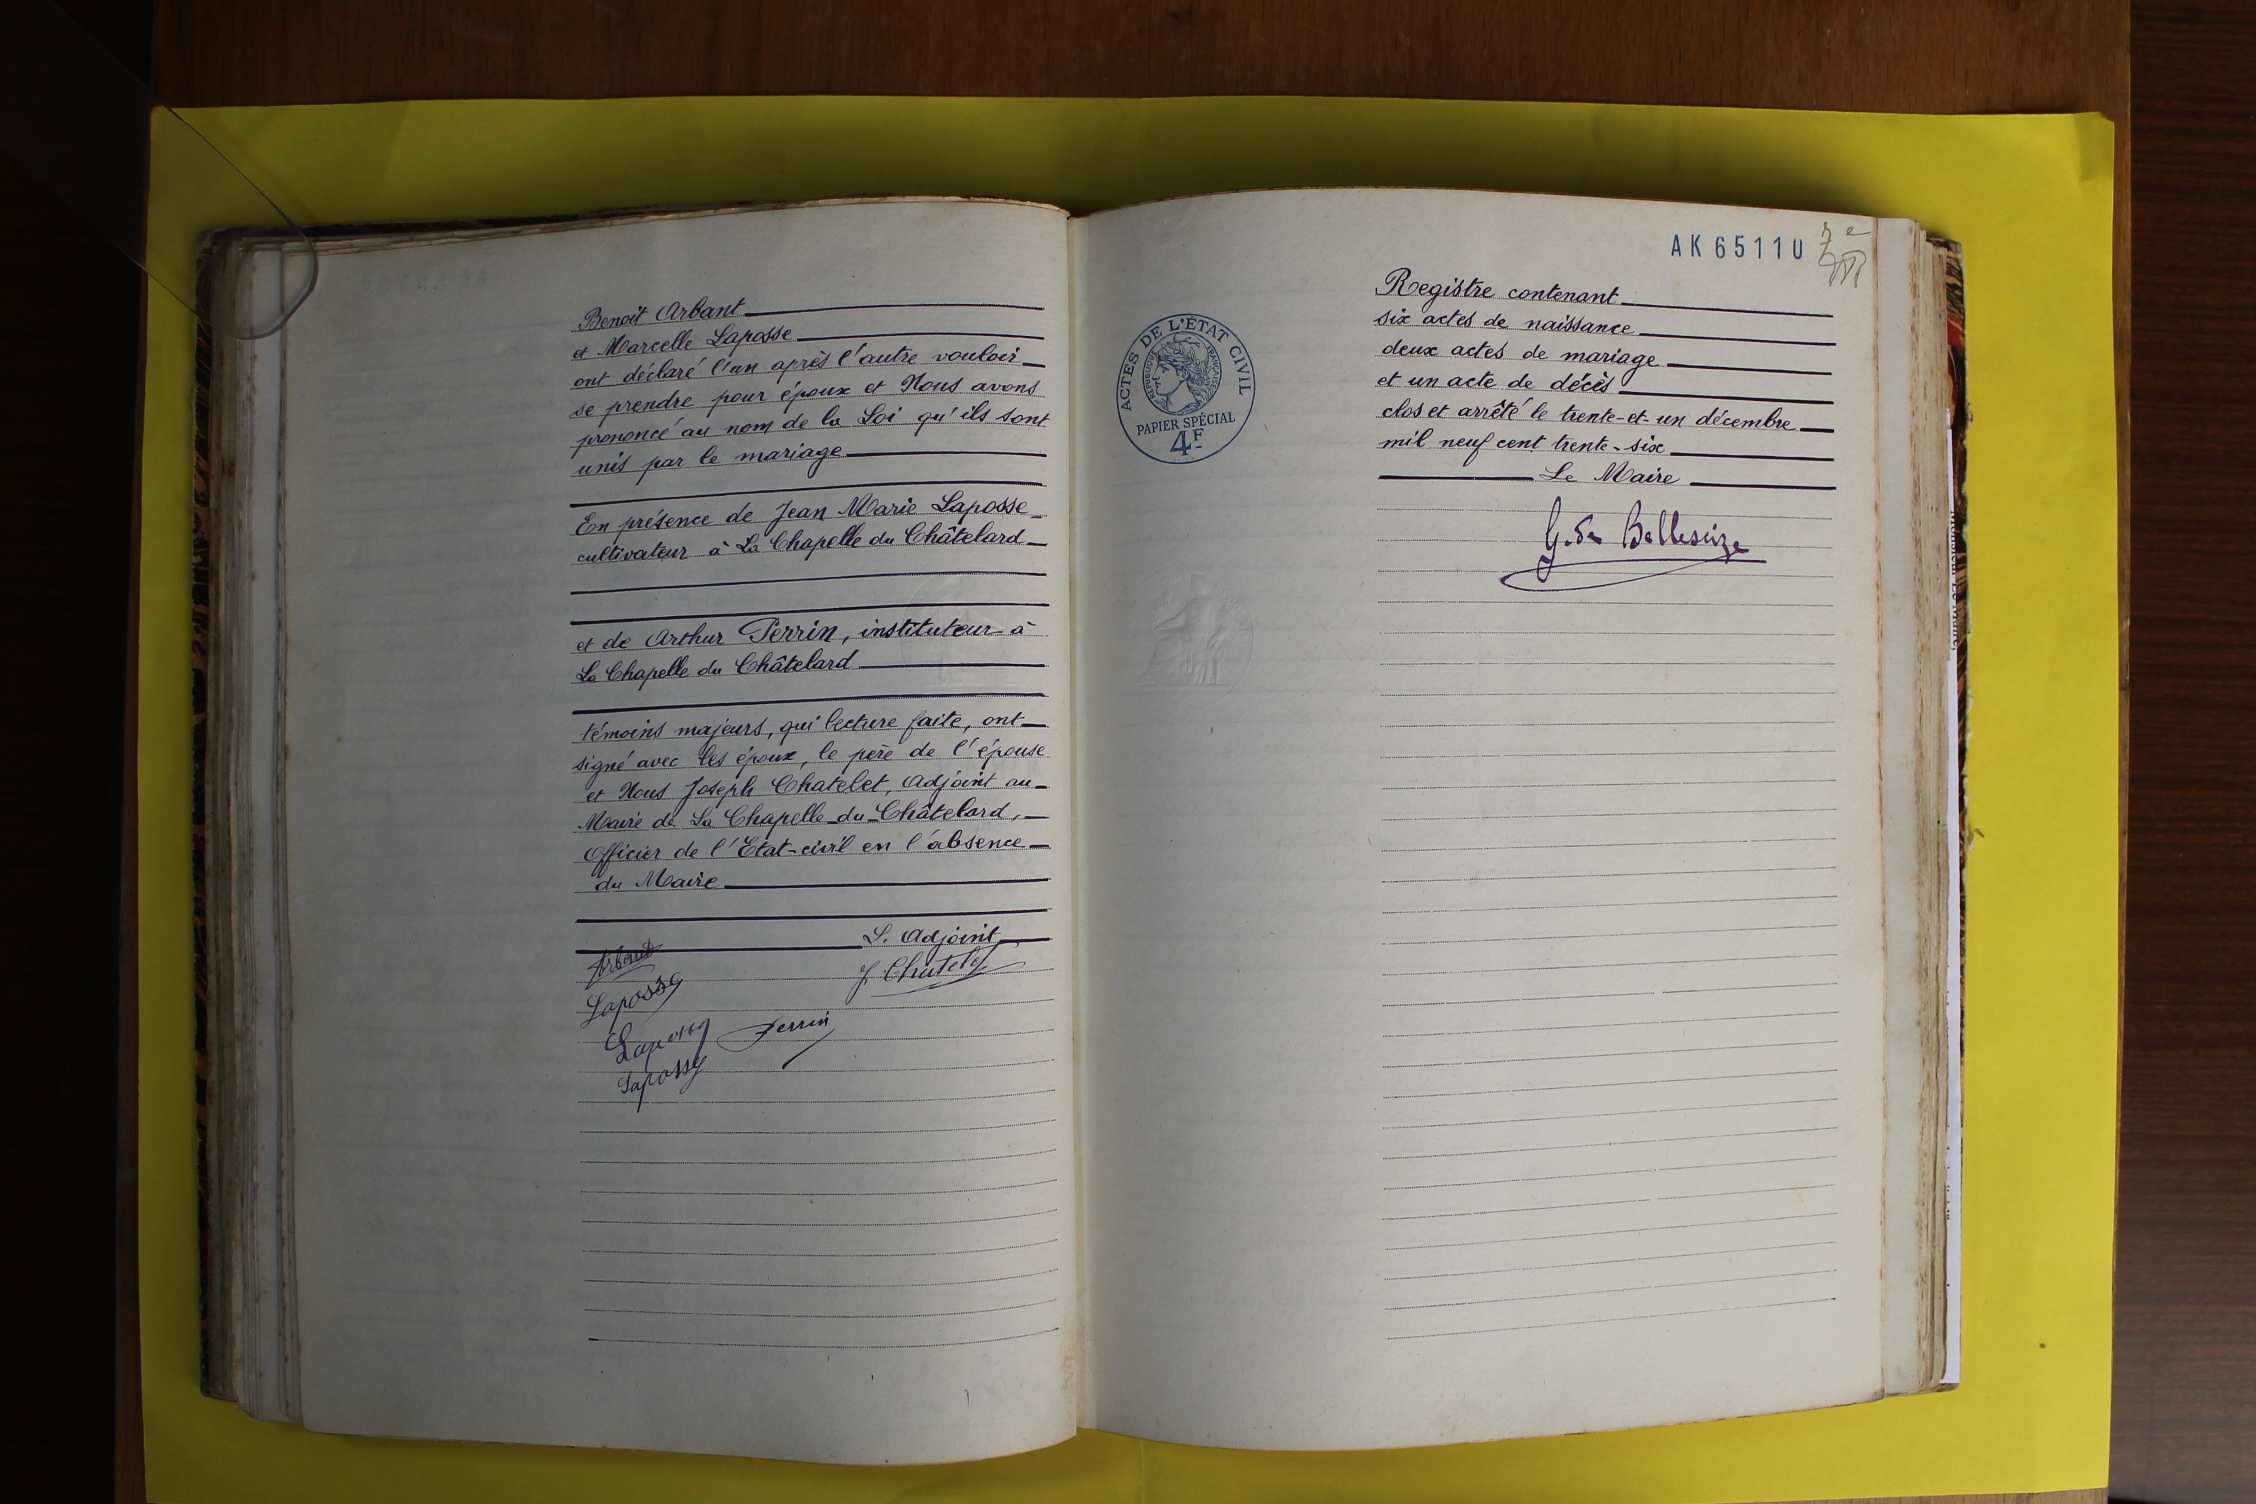 Benoît Arbant
et Marcelle Laposse
ont déclaré l'un après l'autre vouloir
se prendre pour époux et Nous avons
prononcé au nom de la Loi qu'ils sont
unis par le mariage
En présence de Jean Marie Laposse
cultivateur à La Chapelle du Châtelard
et de Arthur Perrin, instituteur à
La Chapelle du Châtelard
témoins majeurs, qui lecture faite, ont
signé avec les époux, le père de l'épouse
et Nous Joseph Chatelet, Adjoint au
Maire de La Chapelle-du-Châtelard,
Officier de l'Etat-civil en l'absence
du Maire
L. Adjoint
Arbant
J. Chatelet
Laposse
Laposse
Perrin
Laposse
AK 65110
Registre contenant
six actes de naissance
deux actes de mariage
et un acte de décès
clos et arrêté le trente-et-un décembre
mil neuf cent trente-six
Le Maire
G. de Bellescize
ACTES DE L'ÉTAT CIVIL
RÉPUBLIQUE FRANÇAISE
PAPIER SPÉCIAL
4F